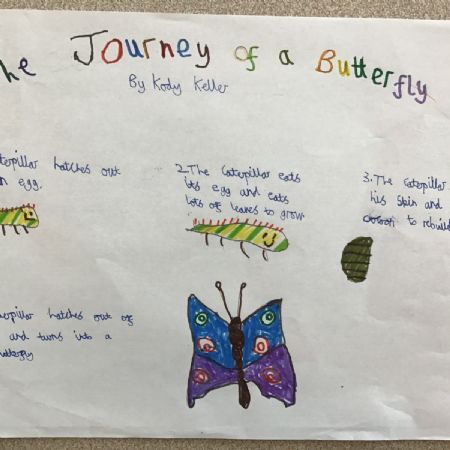 he Journey of a Butterfly
By Kody Keller
terpillar hatches out
n egg.
2. The caterpillar eats
its egg and eats
lots of leaves to grow
3. The caterpillar
his skin and
cocoon to rebuild
terpillar hatches out of
and turns into a
utterfly